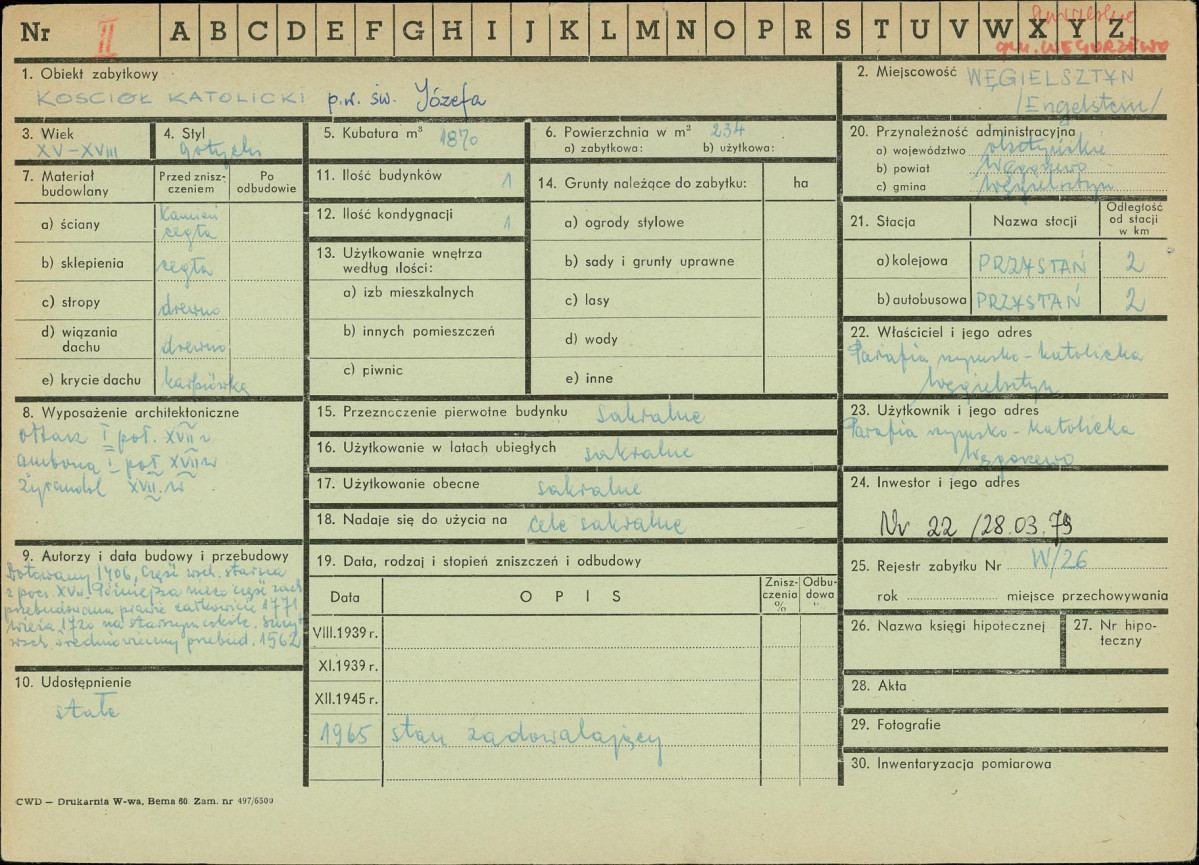 Nr II A B C D E F G H I J K L M N O P R S T U V W X Y Z
gm. WĘGORZEWO
1. Obiekt zabytkowy
KOŚCIÓŁ KATOLICKI p.w. św. Józefa
2. Miejscowość WĘGIELSZTYN
/Engelstein/
3. Wiek
XV-XVIII
4. Styl
gotycki
5. Kubatura m³ 1870
6. Powierzchnia w m² 234
a) zabytkowa: b) użytkowa:
7. Materiał budowlany
Przed zniszczeniem
Po odbudowie
a) ściany kamień
cegła
b) sklepienia cegła
c) stropy drewno
d) wiązania dachu drewno
e) krycie dachu karpiówka
8. Wyposażenie architektoniczne
ołtarz I poł. XVII w
ambona I poł XVII w
żyrandol XVII w
9. Autorzy i data budowy i przebudowy
Dotowany 1406, Część wsch. starsza
z pocz. XV w. Późniejsza nieco część zach
przebudowana prawie całkowicie 1771
wieża 1720 na starszym cokole. Szczyt
wsch. średniowieczny przebud. 1562
10. Udostępnienie
stałe
11. Ilość budynków 1
12. Ilość kondygnacji 1
13. Użytkowanie wnętrza
według ilości:
a) izb mieszkalnych
b) innych pomieszczeń
c) piwnic
14. Grunty należące do zabytku: ha
a) ogrody stylowe
b) sady i grunty uprawne
c) lasy
d) wody
e) inne
15. Przeznaczenie pierwotne budynku sakralne
16. Użytkowanie w latach ubiegłych sakralne
17. Użytkowanie obecne sakralne
18. Nadaje się do użycia na cele sakralne
19. Data, rodzaj i stopień zniszczeń i odbudowy
Data OPIS Zniszczenia % Odbudowa "
VIII.1939 r.
XI.1939 r.
XII.1945 r.
1965 stan zadowalający
20. Przynależność administracyjna
a) województwo olsztyńskie
b) powiat Węgorzewo
c) gmina Węgielsztyn
21. Stacja Nazwa stacji Odległość od stacji w km
a) kolejowa PRZYSTAŃ 2
b) autobusowa PRZYSTAŃ 2
22. Właściciel i jego adres
Parafia rzymsko-katolicka
Węgielsztyn
23. Użytkownik i jego adres
Parafia rzymsko-katolicka
Węgorzewo
24. Inwestor i jego adres
Nr 22 /28.03.79
25. Rejestr zabytku Nr W/26
rok miejsce przechowywania
26. Nazwa księgi hipotecznej
27. Nr hipoteczny
28. Akta
29. Fotografie
30. Inwentaryzacja pomiarowa
CWD — Drukarnia W-wa, Bema 60. Zam. nr 497/6500